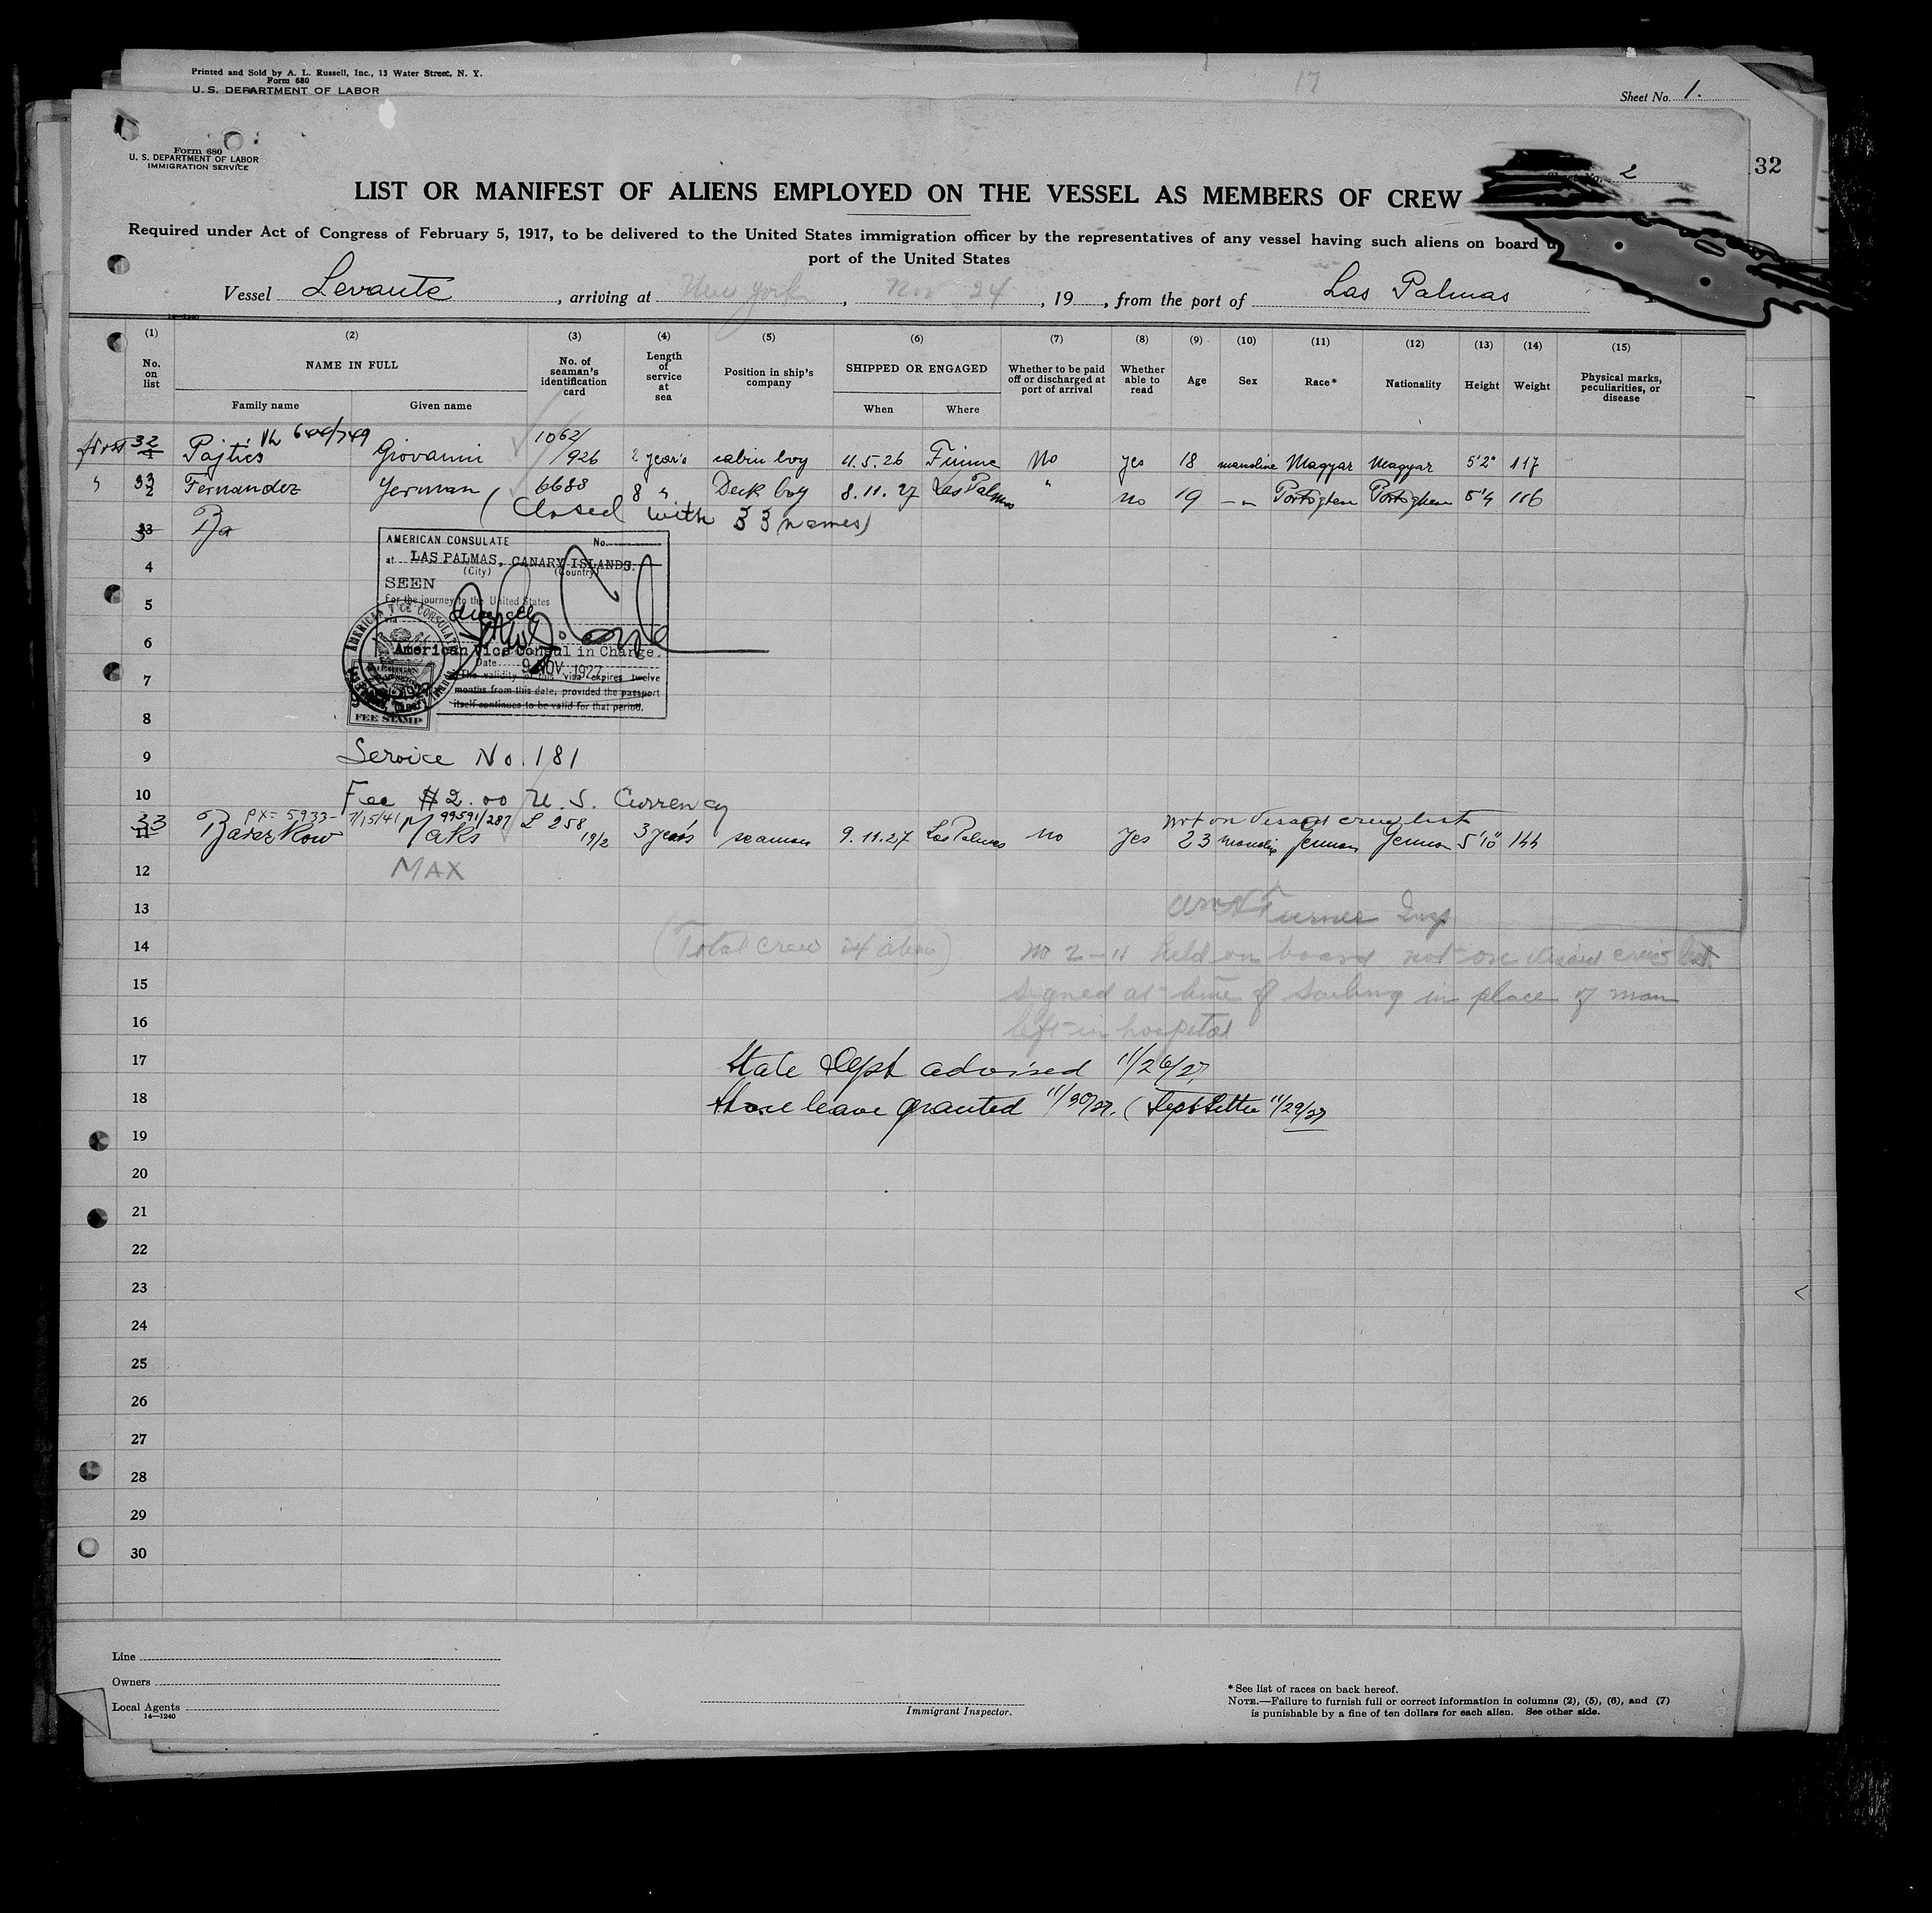 Printed and Sold by A. L. Russell, Inc., 13 Water Street, N. Y.
Form 680
U. S. DEPARTMENT OF LABOR
17
Sheet No. 1.
Form 680
U. S. DEPARTMENT OF LABOR
IMMIGRATION SERVICE
2
32
LIST OR MANIFEST OF ALIENS EMPLOYED ON THE VESSEL AS MEMBERS OF CREW
Required under Act of Congress of February 5, 1917, to be delivered to the United States immigration officer by the representatives of any vessel having such aliens on board
port of the United States
Vessel Levante, arriving at New York, Nov 24, 19, from the port of Las Palmas
(1) (2) (3) (4) (5) (6) (7) (8) (9) (10) (11) (12) (13) (14) (15)
No. on list NAME IN FULL No. of seaman's identification card Length of service at sea Position in ship's company SHIPPED OR ENGAGED Whether to be paid off or discharged at port of arrival Whether able to read Age Sex Race* Nationality Height Weight Physical marks, peculiarities, or disease
Family name Given name When Where
first 32 1 Pajtics Giovanni 1062/926 2 year's cabin boy 4.5.26 Fiume No yes 18 Magyar Magyar 5'2" 117
33 2 Fernandez German 6688 8 " Deck boy 8.11.27 Las Palmas " no 19 5'4 116
(Closed with 33 names)
3
AMERICAN CONSULATE No.
at LAS PALMAS, CANARY ISLANDS.
(City) (Country)
4
SEEN
For the journey to the United States
5
6
American Vice Consul in Change.
Date 9 NOV. 1927
7
The validity of this visa expires twelve
months from this date, provided the passport
itself continues to be valid for that period.
8
FEE STAMP
9 Service No. 181
10 Fee $2.00 U. S. Currency
PX= 5933- 7/15/41 99591/287
not on visaed crew list
33 11 Maks L 258 19/2 3 years seaman 9.11.27 Las Palmas no Yes 23 German German 5'10" 144
12 MAX
13 Turner Insp
14 (Total crew 34 aliens) No 2-11 held on board not on visaed crew list
15 signed at time of sailing in place of man
16 left in hospital
17 State Dept advised 11/26/27
18 Shore leave granted 11/30/27. (Dept Letter 11/29/27
19
20
21
22
23
24
25
26
27
28
29
30
Line
Owners
Local Agents
14—1240
Immigrant Inspector.
* See list of races on back hereof.
NOTE.—Failure to furnish full or correct information in columns (2), (5), (6), and (7)
is punishable by a fine of ten dollars for each alien. See other side.